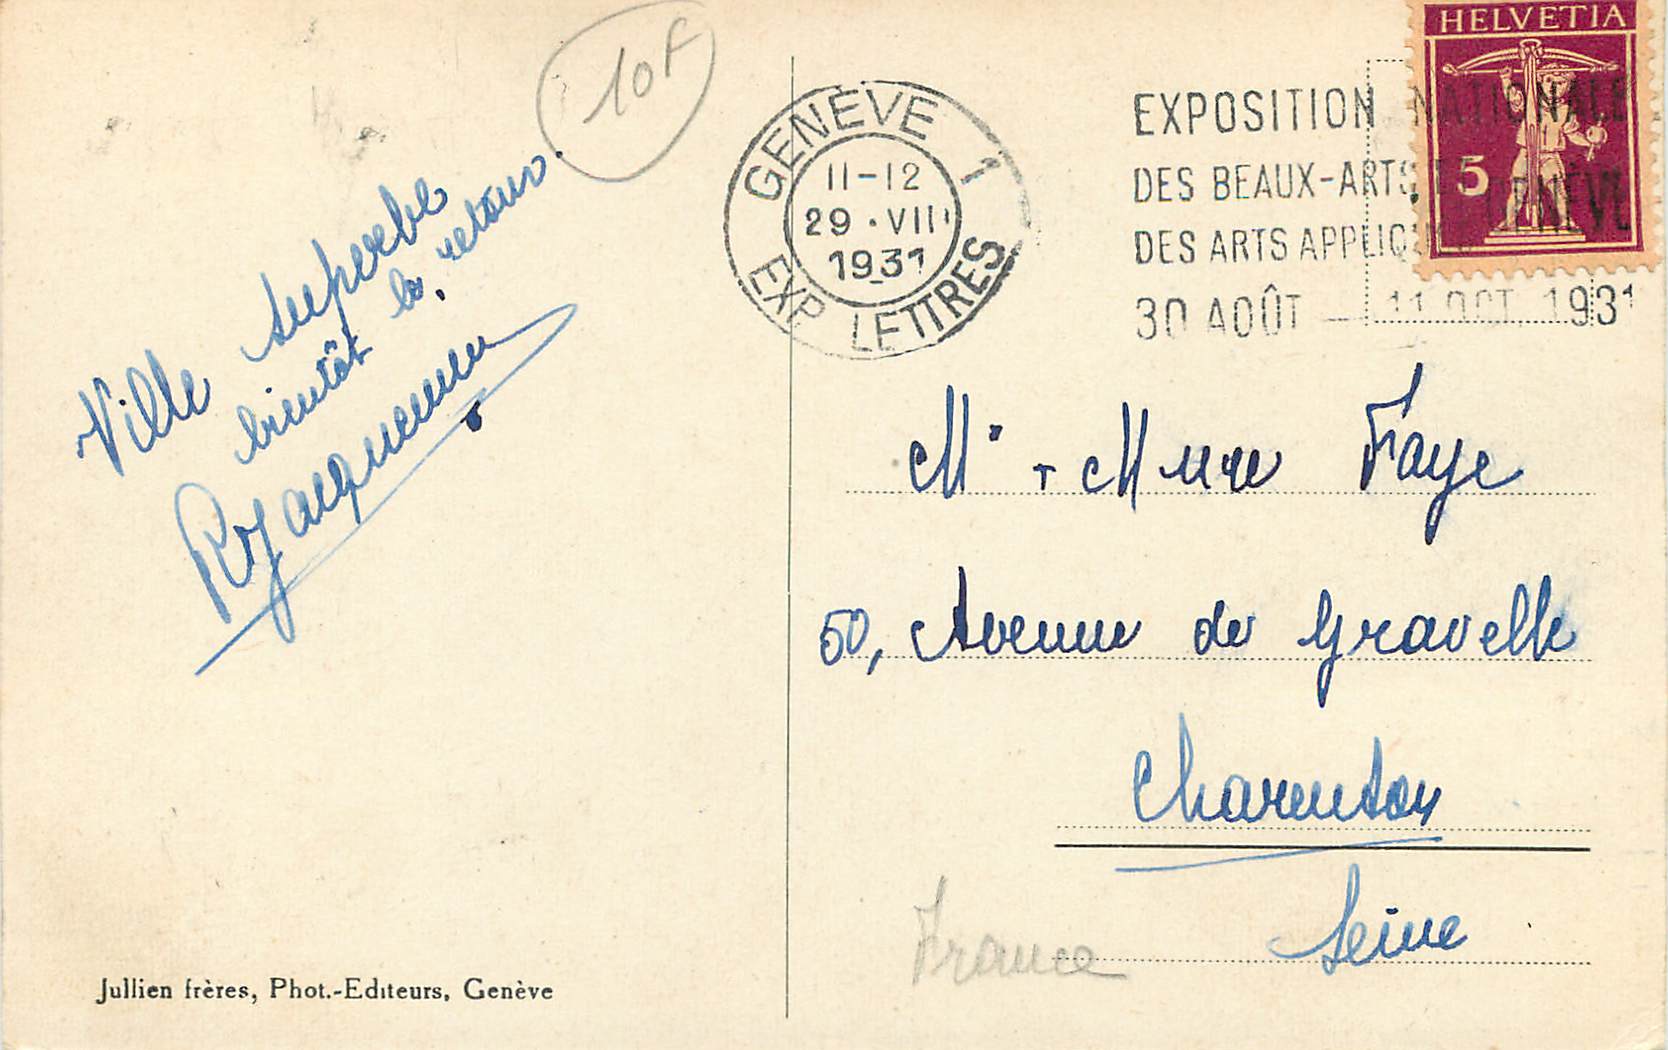 10F
Ville superbe
bientôt le retour.
RJacquemin
Jullien frères, Phot.-Editeurs, Genève
GENÈVE 1
11-12
29 · VIII
1931
EXP. LETTRES
EXPOSITION NATIONALE
DES BEAUX-ARTS ET
DES ARTS APPLIQUÉS GENÈVE
30 AOÛT — 11 OCT. 1931
HELVETIA
5
Mr + Mme Faye
50, Avenue de Gravelle
Charenton
Seine
France